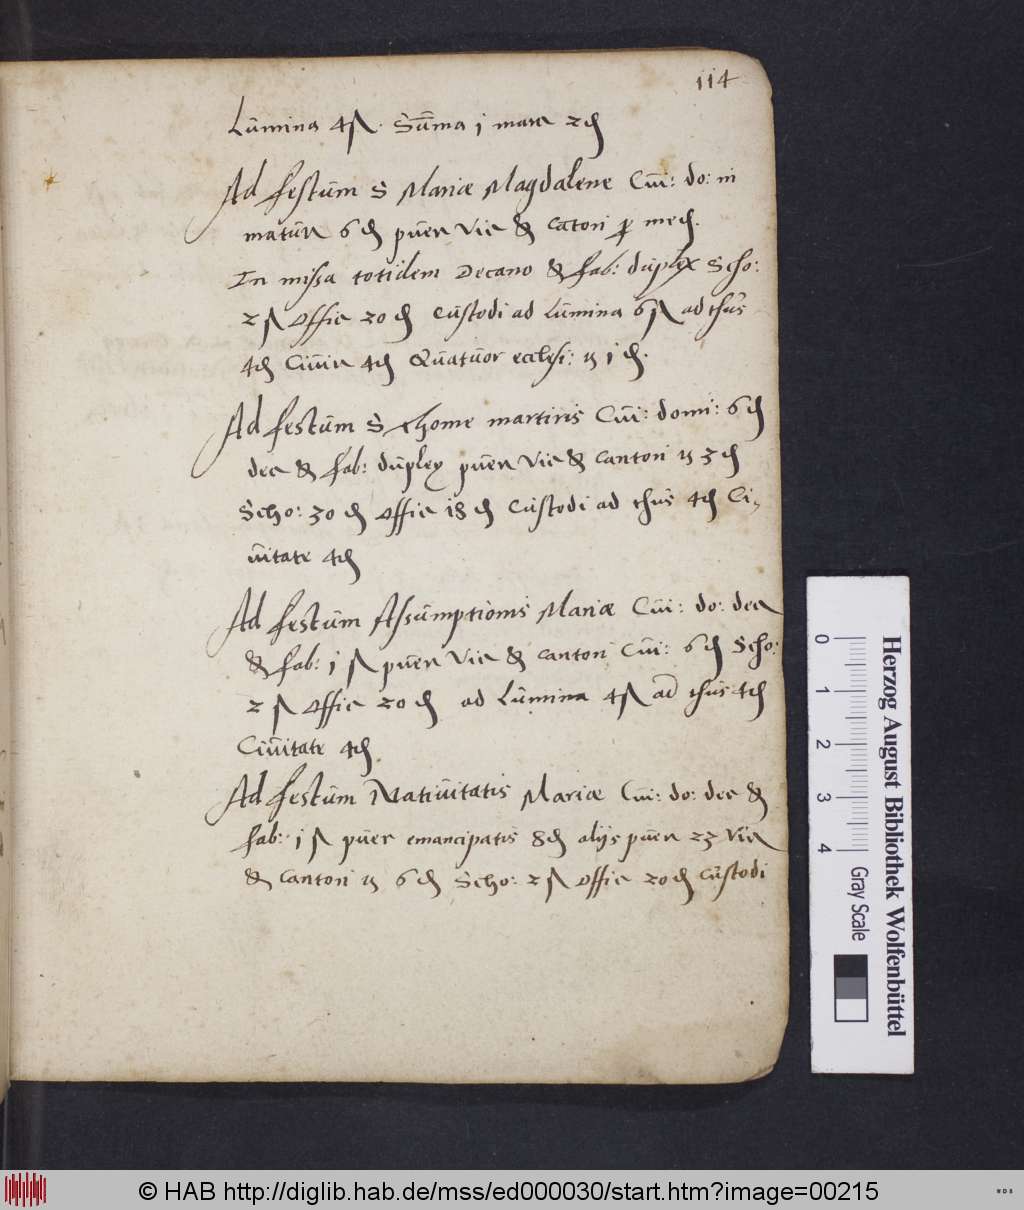 114
Lumina 4 ß. Suma j marc 2 ₰
Ad festum S Mariæ Magdalene Cui: do: in
matur 6 ₰ puer vic & cantori ꝑ med.
In missa totidem Decano & fab: duplex Scho:
2 ß offic 20 ₰ Custodi ad Lumina 6 ß ad thus
4 ₰ Civit 4 ₰ Quatuor ecclesi: 15 j ₰.
Ad festum S Thome martiris Cui: domi: 6 ₰
dec & fab: duplex puer vic & cantori 15 3 ₰
Scho: 30 ₰ offic 18 ₰ Custodi ad thus 4 ₰ Ci-
vitate 4 ₰
Ad festum Assumptionis Mariæ Cui: do: dec
& fab: 1 ß puer vic & cantori Cui: 6 ₰ Scho:
2 ß offic 20 ₰ ad Lumina 4 ß ad thus 4 ₰
Civitate 4 ₰
Ad festum Nativitatis Mariæ Cui: do: dec &
fab: 1 ß puer emancipatis 8 ₰ aliis puer 23 vic
& cantori 15 6 ₰ Scho: 2 ß offic 20 ₰ Custodi
Herzog August Bibliothek Wolfenbüttel
0 1 2 3 4 Gray Scale
© HAB http://diglib.hab.de/mss/ed000030/start.htm?image=00215